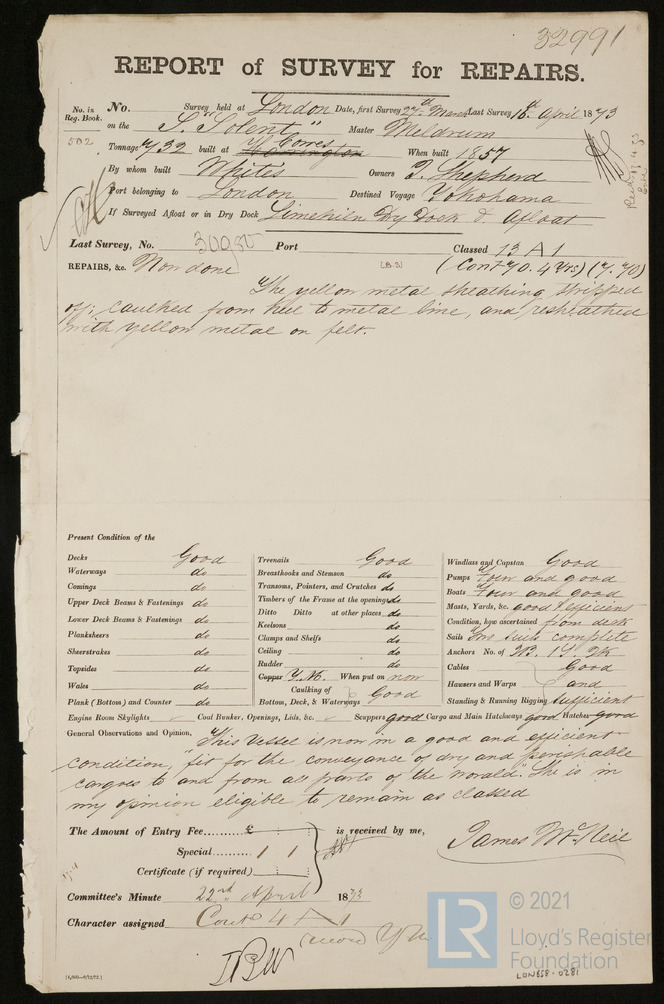 32991
REPORT of SURVEY for REPAIRS.
No. in Reg. Book. No. Survey held at London Date, first Survey 27th March Last Survey 16th April 1873
502 on the S. "Solent" Master Meldrum
Tonnage 732 built at W Cowes When built 1857
By whom built Whites Owners T. Shepherd
Port belonging to London Destined Voyage Yokohama
If Surveyed Afloat or in Dry Dock Limekiln Dry Dock & Afloat
Last Survey, No. 30980 Port Classed 13 A 1
REPAIRS, &c. Now done [B.S] (Cont 70. 4 Yrs) (7. 70)
The yellow metal sheathing stripped
off; caulked from keel to metal line, and resheathed
with yellow metal on felt.
Present Condition of the
Decks Good Treenails Good Windlass and Capstan Good
Waterways do Breasthooks and Stemson do Pumps Four and good
Comings do Transoms, Pointers, and Crutches do Boats Four and good
Upper Deck Beams & Fastenings do Timbers of the Frame at the openings do Masts, Yards, &c. good & efficient
Lower Deck Beams & Fastenings do Ditto Ditto at other places do Condition, how ascertained from deck
Planksheers do Keelsons do Sails two suits complete
Sheerstrakes do Clamps and Shelfs do Anchors No. of 3B. 1S. 2K
Topsides do Ceiling do Cables Good
Wales do Rudder do Hawsers and Warps and
Plank (Bottom) and Counter do Copper Y.M. When put on now Standing & Running Rigging sufficient
Caulking of Bottom, Deck, & Waterways Good
Engine Room Skylights Coal Bunker, Openings, Lids, &c. Scuppers good Cargo and Main Hatchways good Hatches good
General Observations and Opinion, This Vessel is now in a good and efficient
condition, fit for the conveyance of dry and perishable
cargoes to and from all parts of the world. She is in
my opinion eligible to remain as classed
The Amount of Entry Fee......... £ is received by me,
Special......... 1 1 James McNeil
Certificate (if required)
Committee's Minute 22nd April 1873
Character assigned Contd 4 A 1
record YM
© 2021
LR
Lloyd's Register
Foundation
LON658-0281